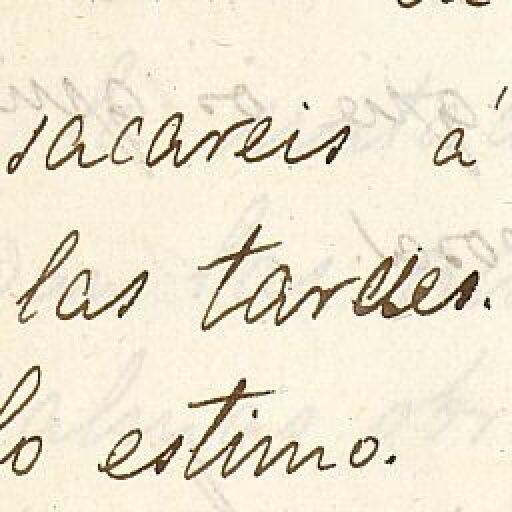 sacareis á
las tardes.
lo estimo.